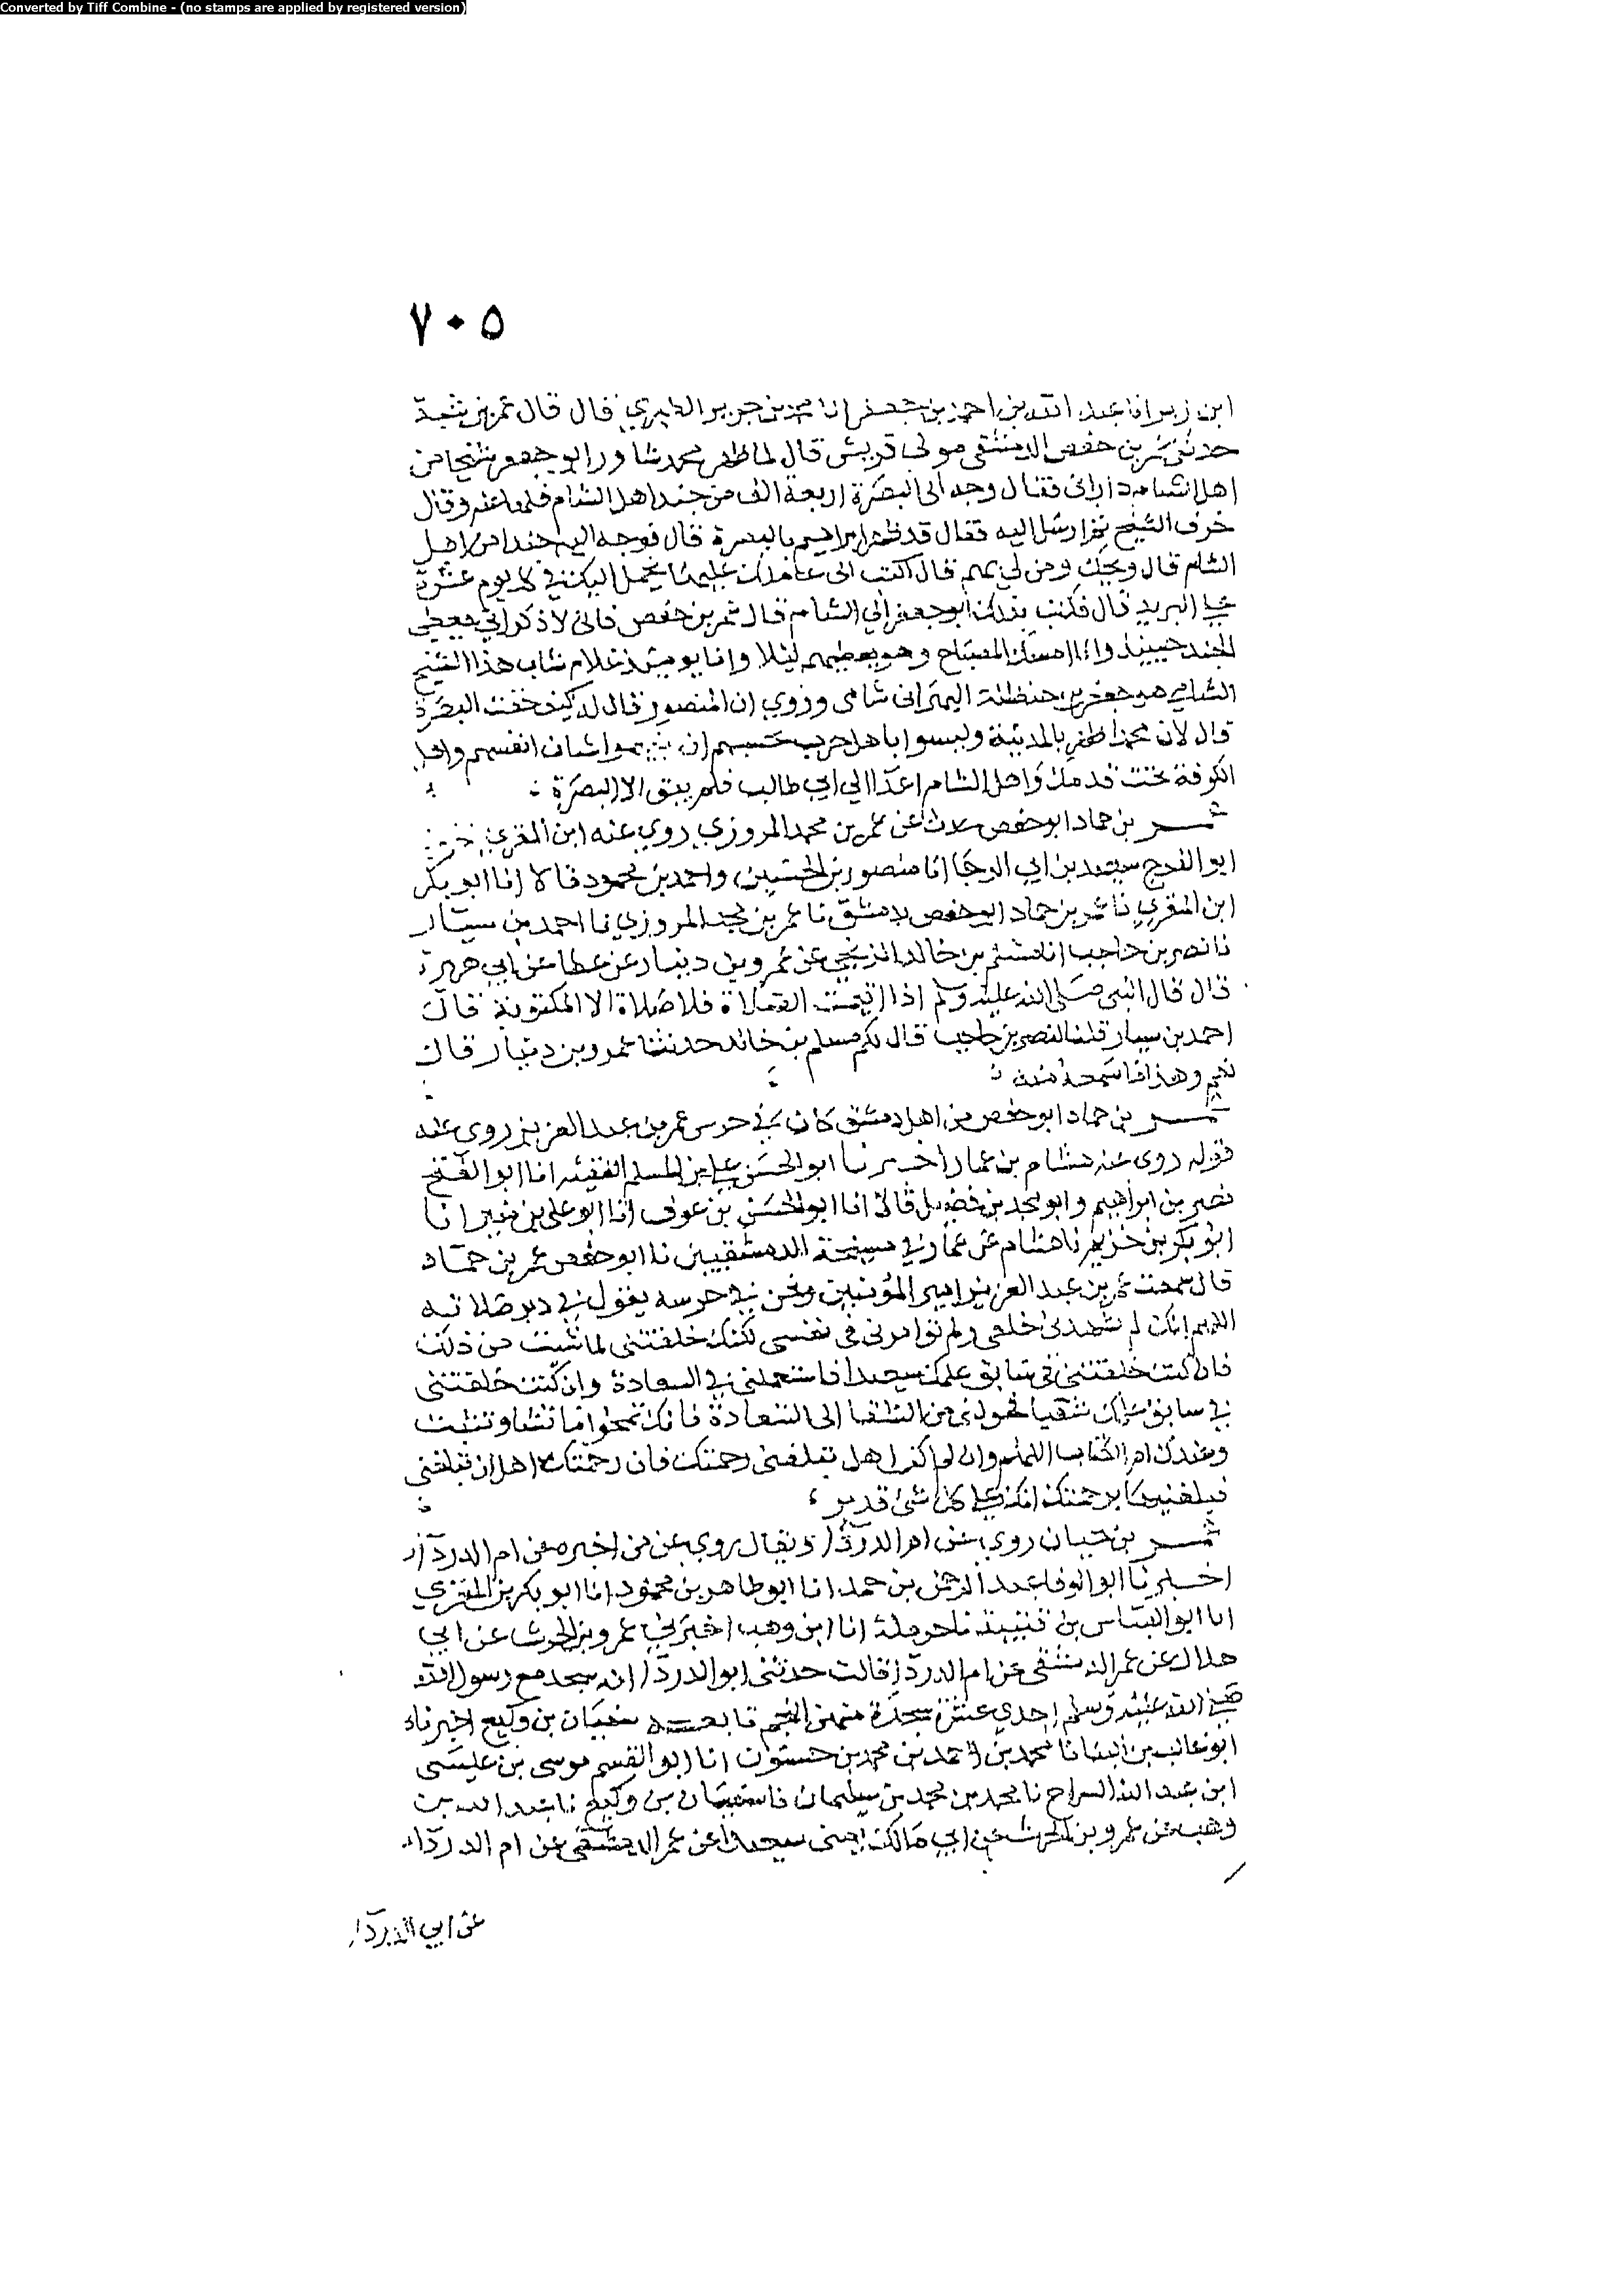 Converted by Tiff Combine - (no stamps are applied by registered version)
٧٠٥
ابن زبر انا عبد الله بن احمد بن جعفر انا محمد بن جرير الطبري قال قال عمر بن شبة
حدثني عمر بن حفص الدمشقي مولى قريش قال لما ظهر محمد شاور ابو جعفر شيخا من
اهل الشام ذا راي فقال وجه الى البصرة اربعة الف من جند اهل الشام فلها عنه وقال
خرف الشيخ ثم ارسل اليه فقال قد ظهر ابراهيم بالبصرة قال فوجه اليه جندا من اهل
الشام قال ويحك ومن لي بهم قال اكتب الى عاملك عليها يحمل اليك في كل يوم عشرة
على البريد قال فكتب بذلك ابو جعفر الي الشام قال عمر بن حفص فاني لاذكر ابي يعطي
الجند حينيذ وانا امسك المصباح وهو يعطيهم ليلا وانا يوميذ غلام شاب هذا الشيخ
الشامي هو جعفر بن حنظلة البهراني شامي وروي ان المنصور قال له كيف خفت البصرة
قال لان محمدا ظهر بالمدينة وليسوا باهل حرب حسبهم ان يقيموا شان انفسهم واهل
الكوفة تحت قدمك واهل الشام اعدا الي ابي طالب فلم يبق الا البصرة
عمر بن حماد ابو حفص حدث عن عمر بن محمد المروزي روي عنه ابن المقري
ابو الفرج سعيد بن ابي الرجا انا منصور بن الحسين واحمد بن محمود قالا انا ابو بكر
ابن المقري نا عمر بن حماد ابو حفص بدمشق نا عمر بن محمد المروزي نا احمد بن سيار
نا نصر بن حاجب انا مسلم بن خالد الزنجي عن عمرو بن دينار عن عطا عن ابي هريرة
قال قال النبي صلى الله عليه وسلم اذا اقيمت الصلاة فلا صلاة الا المكتوبة قال
احمد بن سيار قلنا لنصر بن حاجب قال لكم مسلم بن خالد حدثنا عمرو بن دينار قال
نعم وهذا انا سمعته منه
عمر بن حماد ابو حفص من اهل دمشق كان في حرس عمر بن عبد العزيز روى عنه
قوله روى عنه هشام بن عمار اخبرنا ابو الحسن علي بن المسلم الفقيه انا ابو الفتح
نصر بن ابراهيم وابو محمد بن فضيل قالا انا ابو الحسن بن عوف انا ابو علي بن منير انا
ابو بكر بن خزيم نا هشام عن عمار في مسيخة الدمشقيين نا ابو حفص عمر بن حماد
قال سمعت عمر بن عبد العزيز امير المؤمنين ونحن في حرسه يقول في دبر صلاته
اللهم انك لم تشهدني خلقي ولم توامرني في نفسي لكنك خلقتني لما شيت من ذلك
فان كنت خلقتني في سابق علمك سعيدا فاستعملني في السعادة وان كنت خلقتني
في سابق علمك شقيا فحولني من الشقا الى السعادة فانك تمحوا ما تشا وتثبت
وعندك ام الكتاب اللهم وان لم اكن اهل تبلغني رحمتك فان رحمتك اهل ان تبلغني
فبلغنيها برحمتك انك على كل شي قدير
عمر بن حيان روي عن ام الدردا ويقال روي عن من اخبره عن ام الدردا
اخبرنا ابو الوفا عبد الرحمن بن حمد انا ابو طاهر بن محمود انا ابو بكر بن المقري
انا ابو العباس بن قتيبة نا حرملة انا ابن وهب اخبرني عمرو بن الحرث عن ابي
هلال عن عمر الدمشقي عن ام الدردا قالت حدثني ابو الدردا انه سجد مع رسول الله
صلى الله عليه وسلم احدي عشرة سجدة منهن النجم تابعه سفيان بن وكيع اخبرناه
ابو غالب بن البنا انا محمد بن احمد بن محمد بن حسنون انا ابو القسم موسى بن عيسى
ابن عبد الله السراج نا محمد بن محمد بن سليمان نا سفيان بن وكيع نا عبد الله بن
وهب عن عمرو بن الحرث عن ابي مالك يعني سعيدا عن عمر الدمشقي عن ام الدرداء
عن ابي الدردا